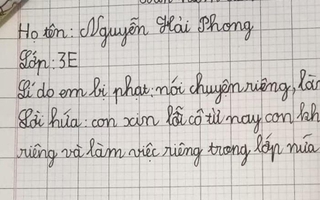 Họ tên: Nguyễn Hải Phong
Lớp: 3E
Lí do em bị phạt: nói chuyện riêng, làm
Lời hứa: con xin lỗi cô từ nay con kh
riêng và làm việc riêng trong lớp nữa